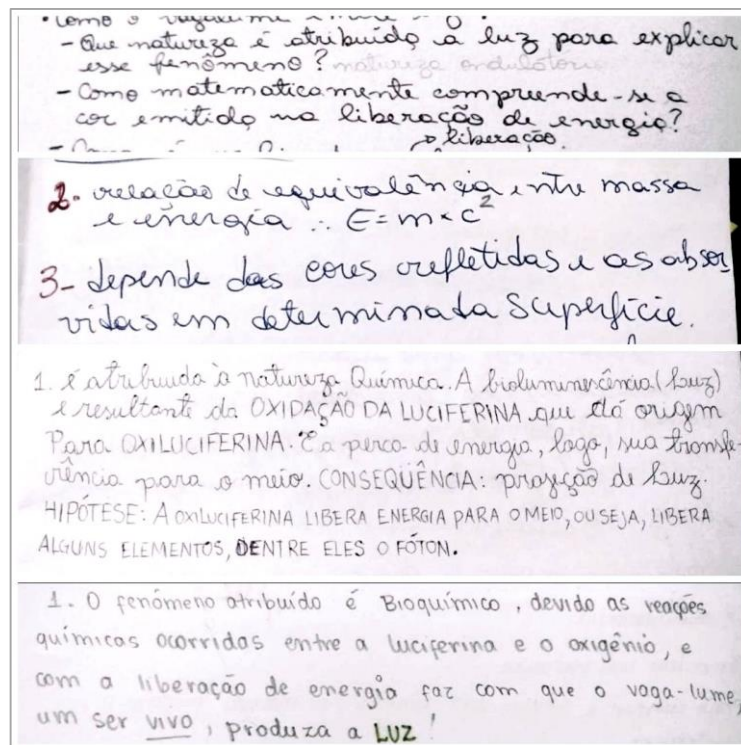 • Como o vagalume
- Que natureza é atribuída a luz para explicar
esse fenômeno? natureza ondulatória
- Como matematicamente compreende-se a
cor emitida na liberação de energia?
liberação
2- relação de equivalência entre massa
e energia ∴ E = m × c²
3- depende das cores refletidas e as absor
vidas em determinada superfície.
1. é atribuída à natureza Química. A bioluminescência (luz)
é resultante da OXIDAÇÃO DA LUCIFERINA que dá origem
Para OXILUCIFERINA. É a perca de energia, logo, sua transfe-
rência para o meio. CONSEQUÊNCIA: projeção de luz.
HIPÓTESE: A OXILUCIFERINA LIBERA ENERGIA PARA O MEIO, OU SEJA, LIBERA
ALGUNS ELEMENTOS, DENTRE ELES O FÓTON.
1. O fenômeno atribuído é Bioquímico, devido as reações
químicas ocorridas entre a luciferina e o oxigênio, e
com a liberação de energia faz com que o vaga-lume,
um ser vivo, produza a LUZ!